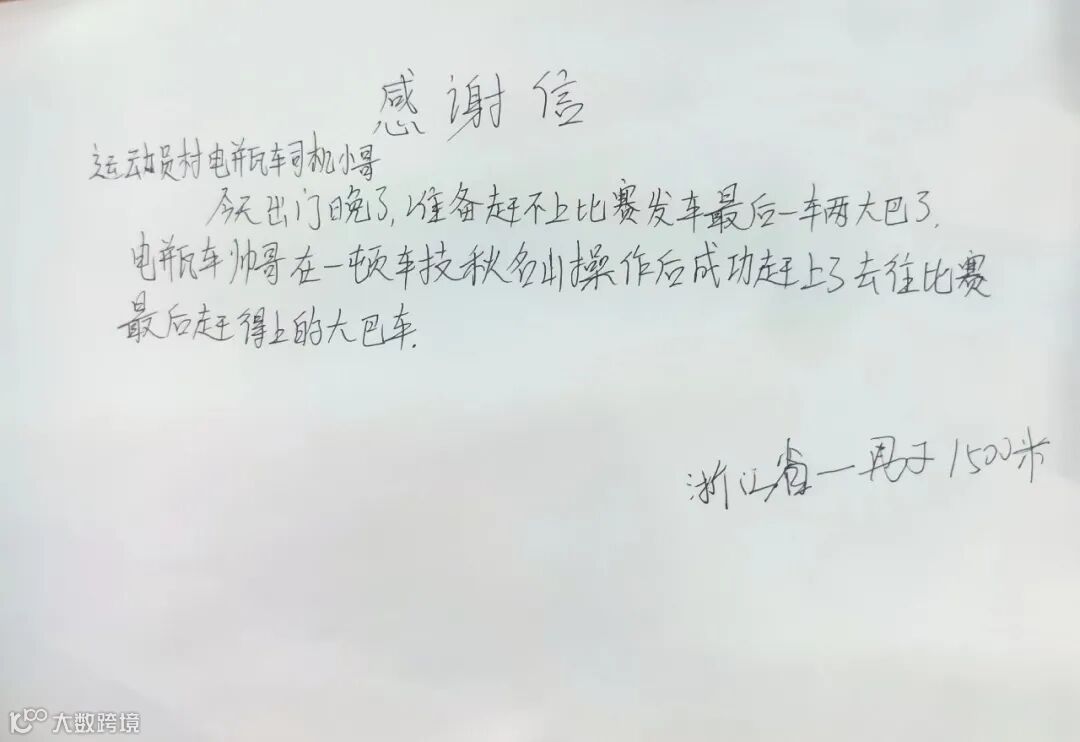 感谢信
运动员村电瓶车司机小哥
今天出门晚了,准备赶不上比赛发车最后一车两大巴了.
电瓶车帅哥在一顿车技秋名山操作后成功赶上了去往比赛
最后赶得上的大巴车.
浙江省—男子1500米
大数跨境